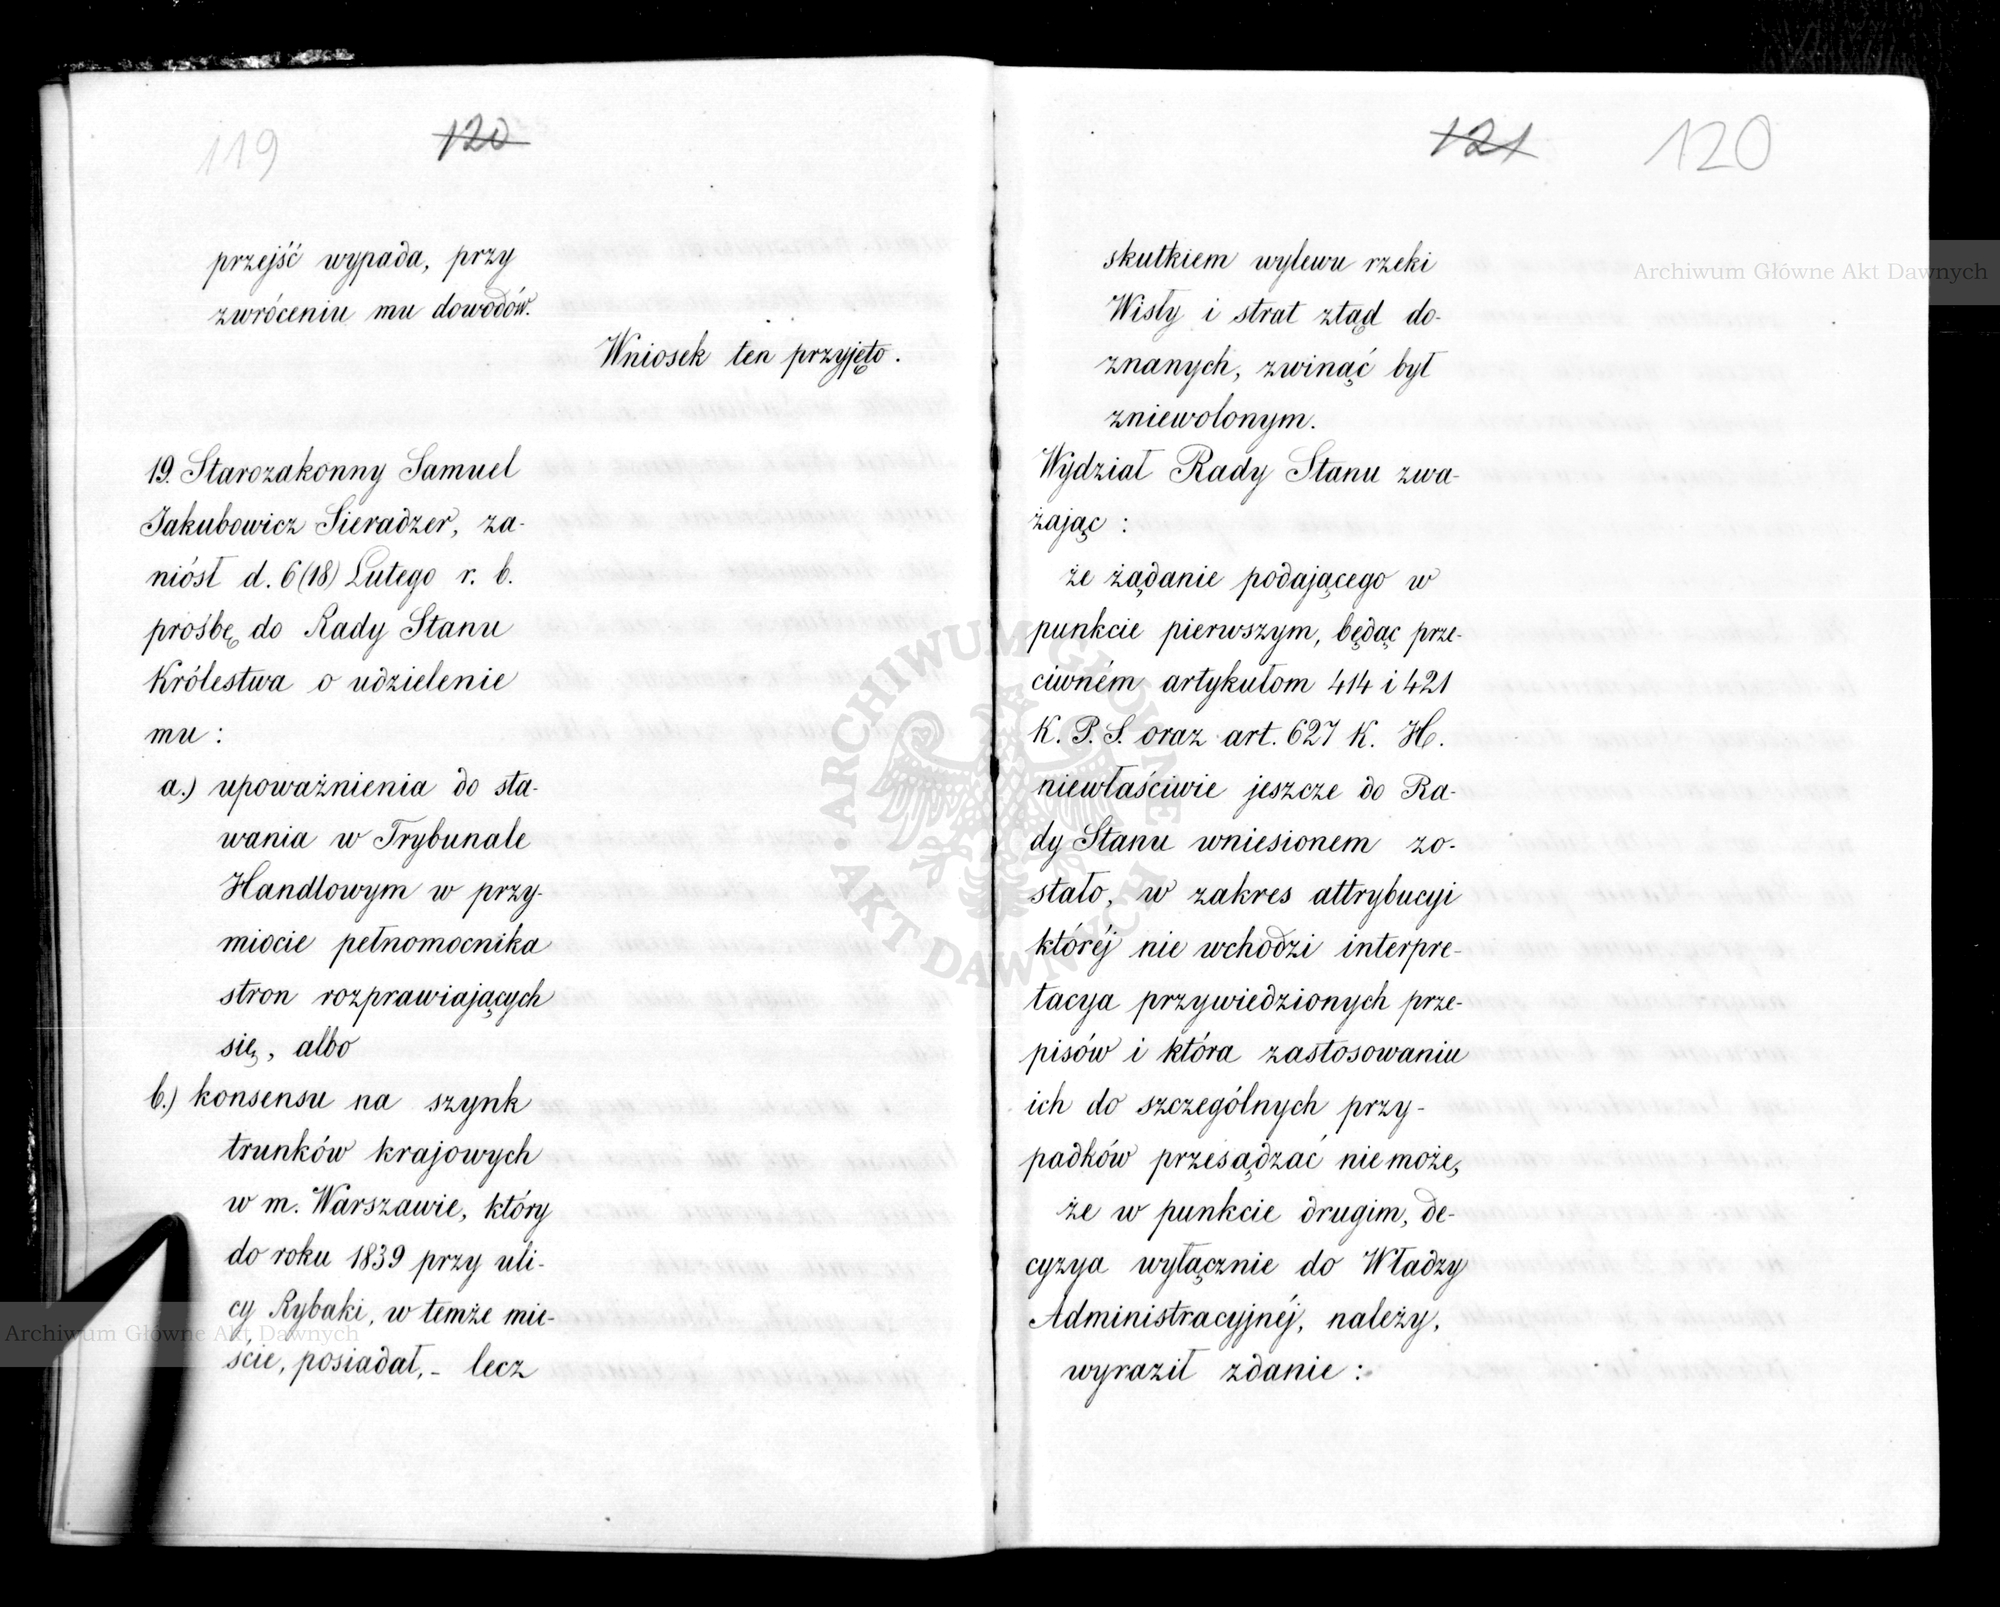 119
120
przejść wypada, przy
zwróceniu mu dowodów.
Wniosek ten przyjęto.
19. Starozakonny Samuel
Jakubowicz Sieradzer, za-
niósł d. 6 (18) Lutego r. b.
prośbę do Rady Stanu
Królestwa o udzielenie
mu:
a.) upoważnienia do sta-
wania w Trybunale
Handlowym w przy-
miocie pełnomocnika
stron rozprawiających
się, albo
b.) konsensu na szynk
trunków krajowych
w m. Warszawie, który
do roku 1839 przy uli-
cy Rybaki, w temże mie-
ście, posiadał, - lecz
121
120
skutkiem wylewu rzeki
Wisły i strat ztąd do-
znanych, zwinąć był
zniewolonym.
Wydział Rady Stanu zwa-
żając:
że żądanie podającego w
punkcie pierwszym, będąc prze-
ciwném artykułom 414 i 421
K. P. S. oraz art. 627 K. H.
niewłaściwie jeszcze do Ra-
dy Stanu wniesionem zo-
stało, w zakres attrybucyi
któréj nie wchodzi interpre-
tacya przywiedzionych prze-
pisów i która zastosowaniu
ich do szczególnych przy-
padków przesądzać nie może,
że w punkcie drugim, de-
cyzya wyłącznie do Władzy
Administracyjnéj, należy,
wyraził zdanie:
Archiwum Główne Akt Dawnych
Archiwum Główne Akt Dawnych
ARCHIWUM GŁÓWNE AKT DAWNYCH